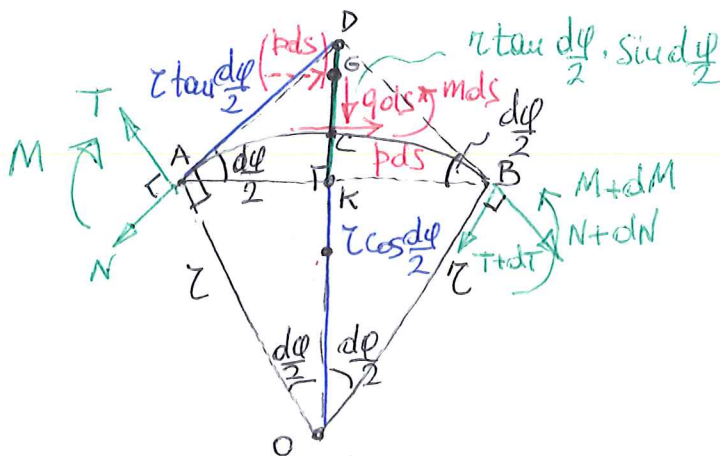 D
(pds)
r tan dφ/2
G
r tan dφ/2 · sin dφ/2
qds
mds
T
M
A
dφ/2
C
pds
dφ/2
B
M+dM
Γ
K
N
N+dN
T+dT
r cos dφ/2
r
r
dφ/2
dφ/2
O